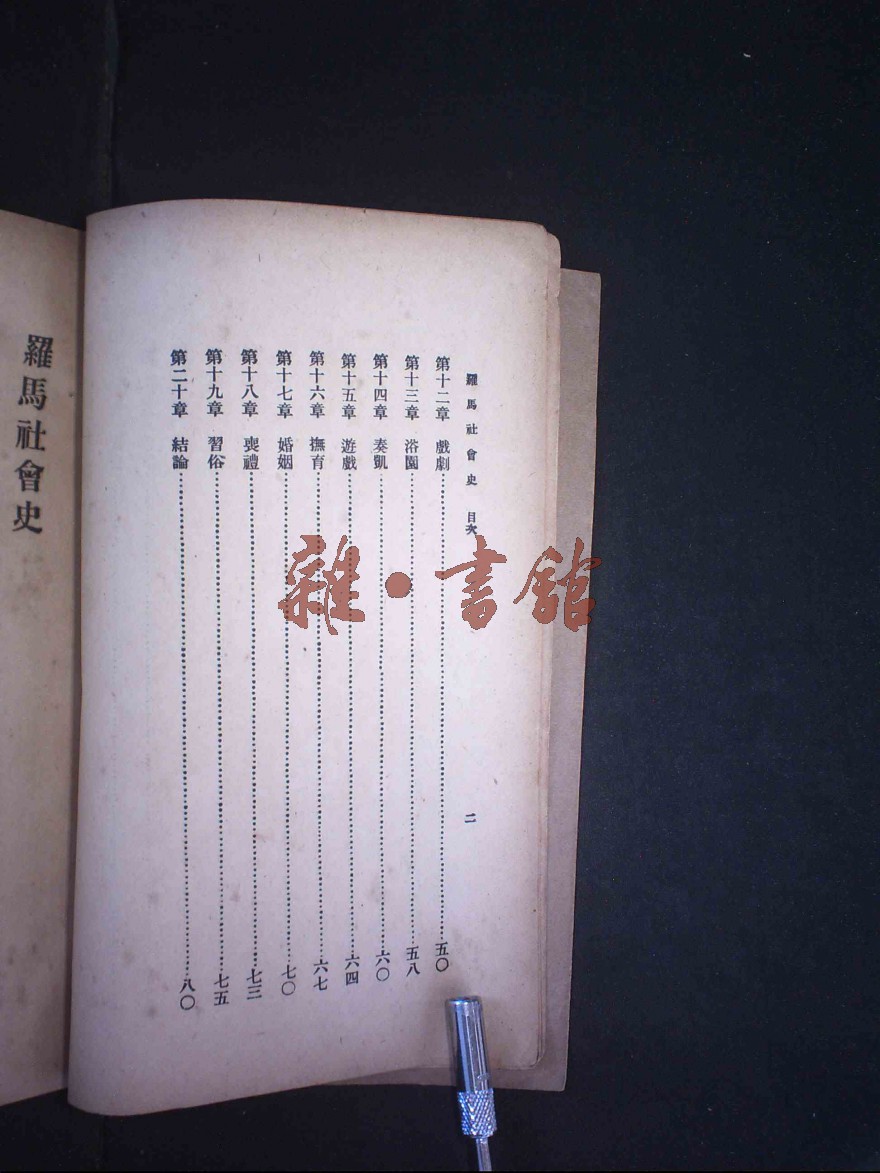 羅馬社會史 目次 二
第十二章 戲劇……五〇
第十三章 浴園……五八
第十四章 奏凱……六〇
第十五章 遊戲……六四
第十六章 撫育……六七
第十七章 婚姻……七〇
第十八章 喪禮……七三
第十九章 習俗……七五
第二十章 結論……八〇
羅馬社會史
雜·書館